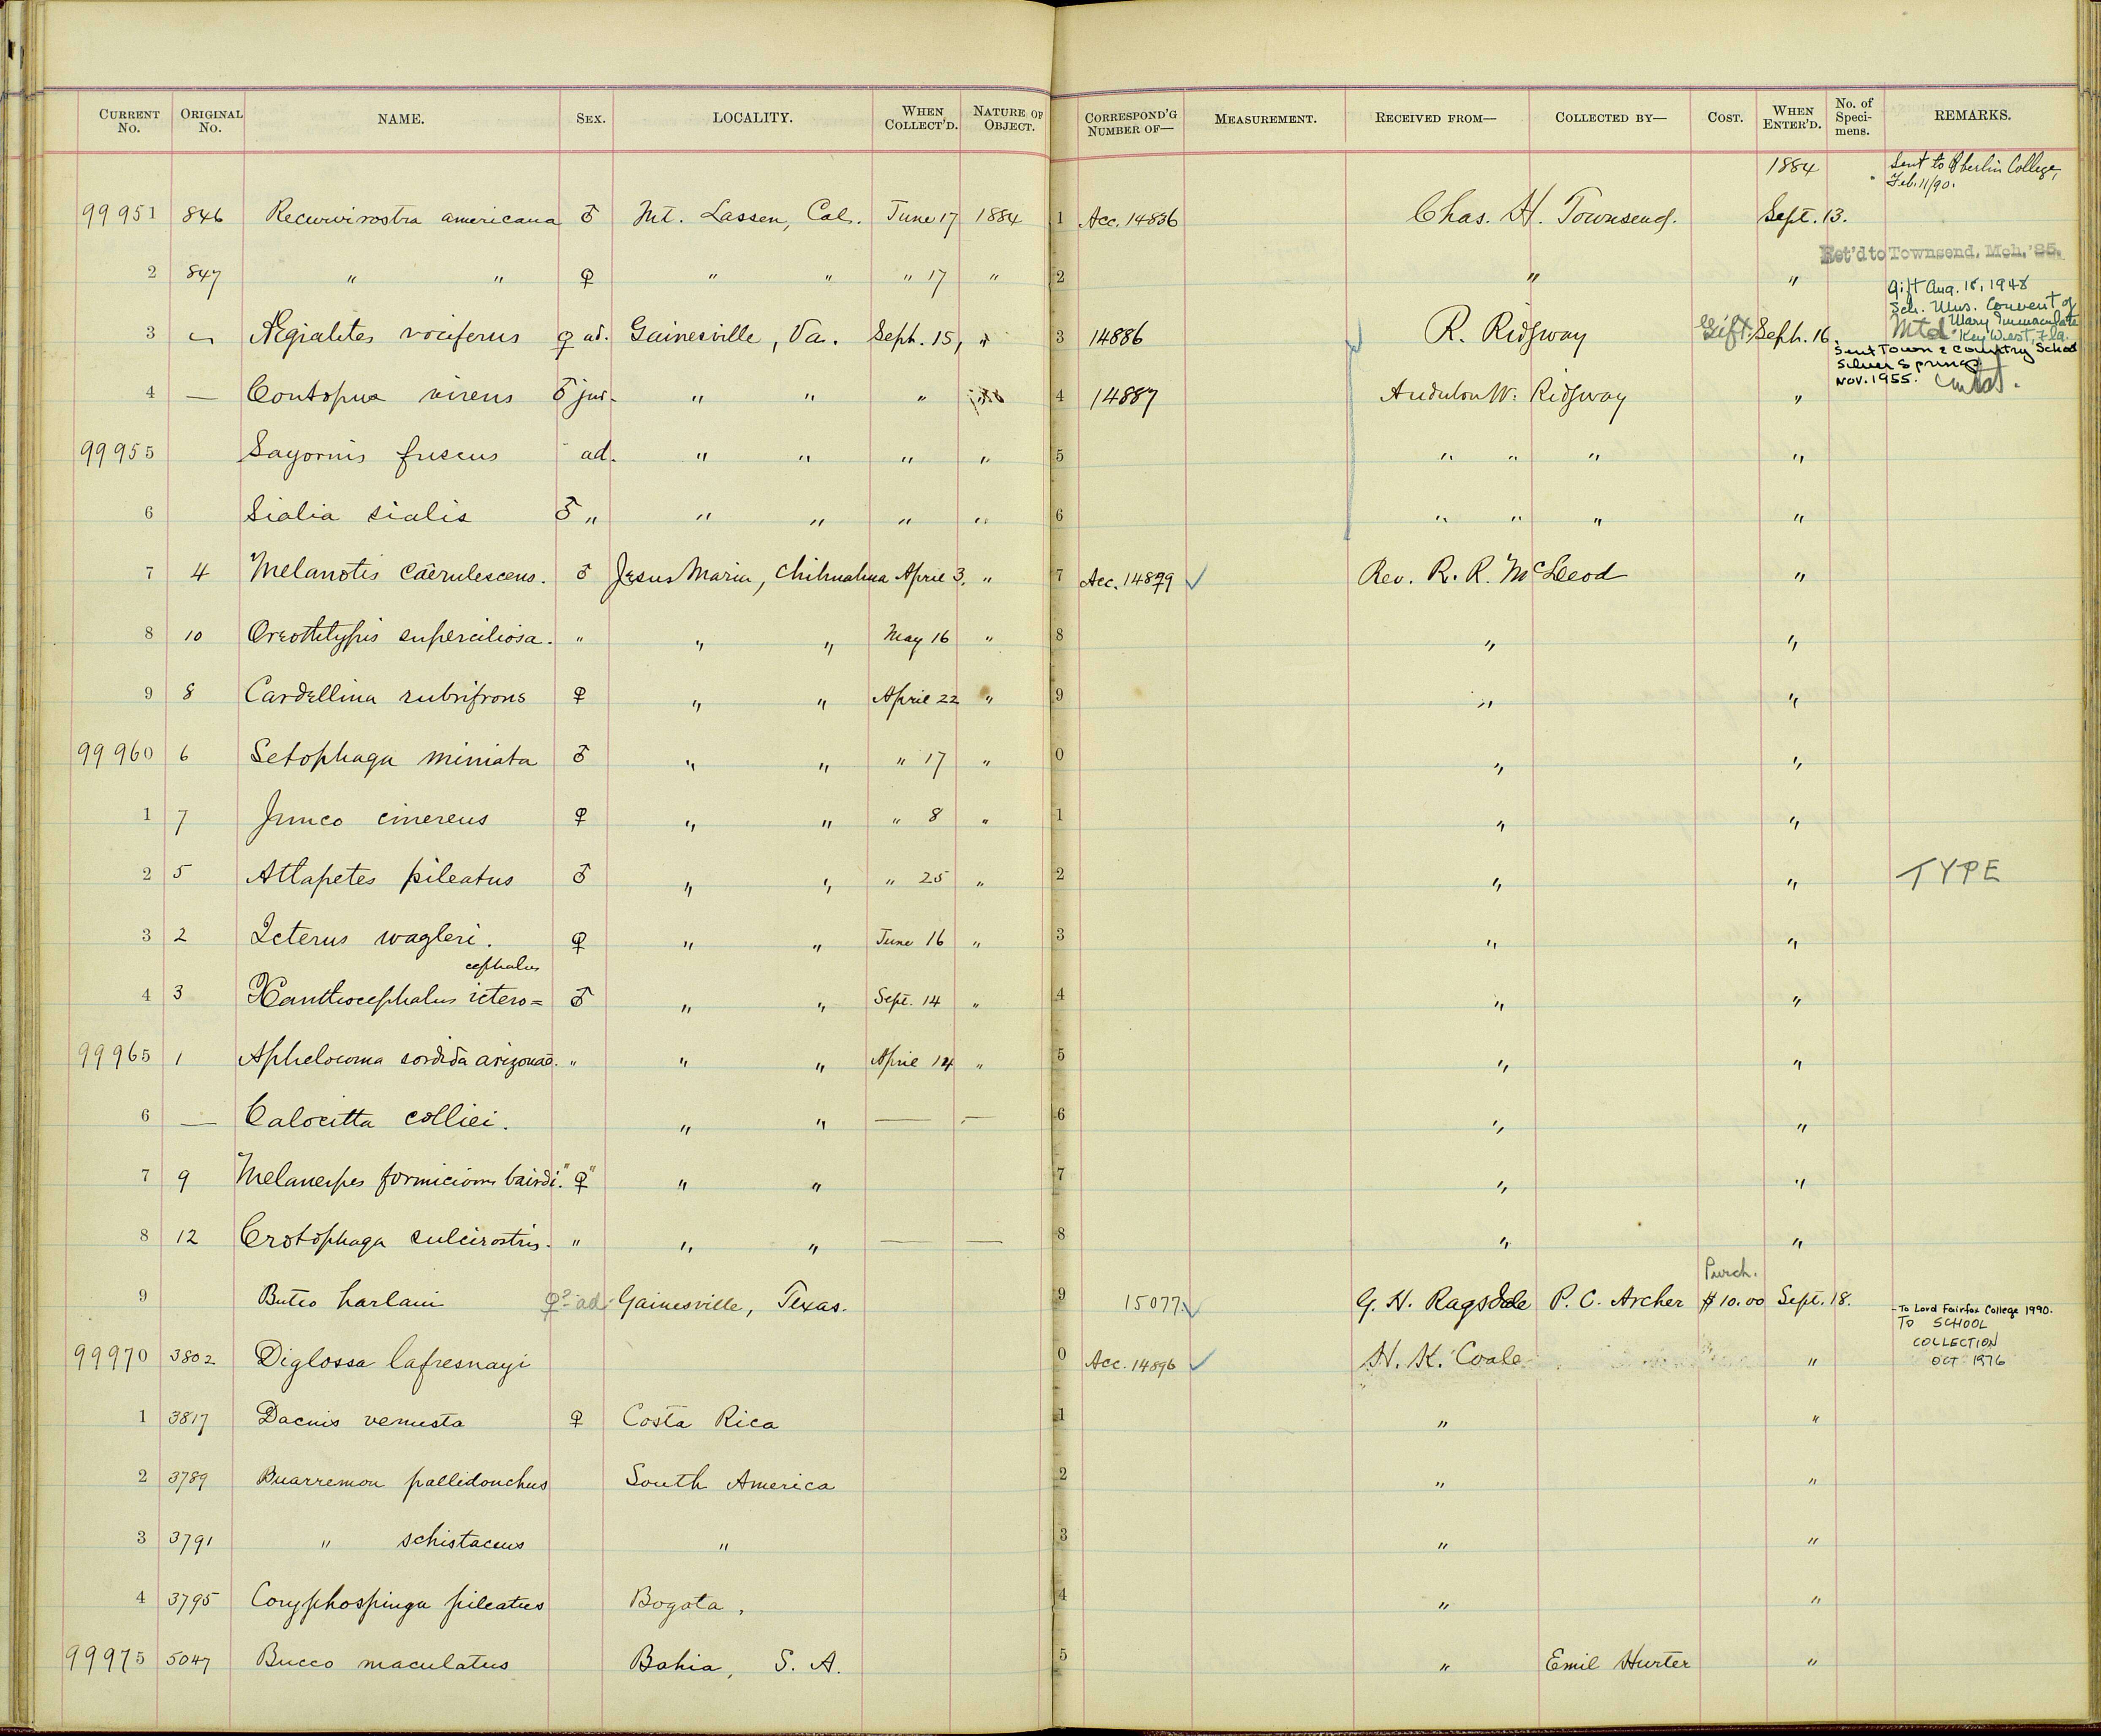 CURRENT No. ORIGINAL No. NAME. SEX. LOCALITY. WHEN COLLECT'D. NATURE OF OBJECT. CORRESPOND'G NUMBER OF— MEASUREMENT. RECEIVED FROM— COLLECTED BY— COST. WHEN ENTER'D. No. of Specimens. REMARKS.
1884 Sent to Oberlin College,
Feb. 11/90.
99951 846 Recurvirostra americana ♂ Mt. Lassen, Cal. June 17 1884 1 Acc. 14836 Chas. H. Townsend. Sept. 13.
Ret'd to Townsend, Mch. '85.
2 847 " " ♀ " " " 17 " 2 " "
Gift Aug. 18, 1948
Sch. Mus. Convent of
Mary Immaculate
3 Ægialites vociferus ♀ ad. Gainesville, Va. Sept. 15, " 3 14886 R. Ridgway Gift. Sept. 16. Mtd. Key West, Fla.
Sent Town & Country School
Silver Spring
Nov. 1955.
4 — Contopus virens ♂ juv. " " " 4 14887 Audubon W. Ridgway "
99955 Sayornis fuscus ad. " " " " 5 " " " "
6 Sialia sialis ♂ " " " " " 6 " " " "
7 4 Melanotis caerulescens. ♂ Jesus Maria, Chihuahua April 3. " 7 Acc. 14879 ✓ Rev. R. R. McLeod "
8 10 Oreothlypis superciliosa. " " " May 16 " 8 " "
9 8 Cardellina rubrifrons ♀ " " April 22 " 9 " "
99960 6 Setophaga miniata ♂ " " " 17 " 0 " "
1 7 Junco cinereus ♀ " " " 8 " 1 " "
2 5 Atlapetes pileatus ♂ " " " 25 " 2 " " TYPE
3 2 Icterus wagleri. ♀ " " June 16 " 3 " "
cephalus
4 3 Xanthocephalus ictero= ♂ " " Sept. 14 " 4 " "
99965 1 Aphelocoma sordida arizonae. " " " April 14 " 5 " "
6 — Calocitta colliei. " " — — 6 " "
7 9 Melanerpes formicivorus bairdi. "♀" " " 7 " "
8 12 Crotophaga sulcirostris. " " " — — 8 " "
Purch.
9 Buteo harlani ♀? ad. Gainesville, Texas. 9 15077 ✓ G. H. Ragsdale P. C. Archer $10.00 Sept. 18.
- To Lord Fairfax College 1990.
TO SCHOOL
COLLECTION
OCT 1976
99970 3802 Diglossa lafresnayi 0 Acc. 14896 ✓ H. K. Coale "
1 3817 Dacnis venusta ♀ Costa Rica 1 " "
2 3789 Buarremon pallidonchus South America 2 " "
3 3791 " schistaceus " 3 " "
4 3795 Coryphospingu pileatus Bogota, 4 " "
99975 5047 Bucco maculatus Bahia, S. A. 5 " Emil Hurter "